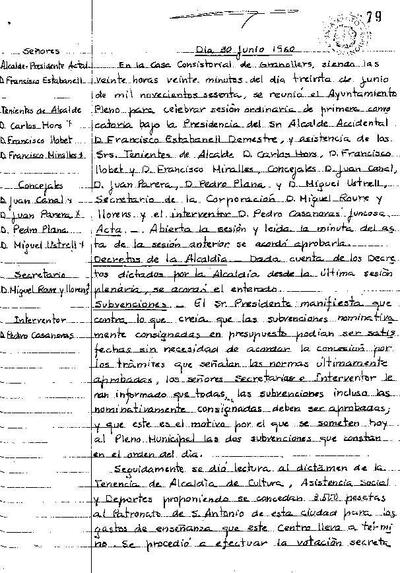 79
Señores
Alcalde-Presidente Actal
D. Francisco Estabanell
Tenientes de Alcalde
D. Carlos Hors
D. Francisco Llobet
D. Francisco Miralles
Concejales
D. Juan Canal
D. Juan Parera
D. Pedro Plana
D. Miguel Ustrell
Secretario
D. Miguel Roure y Llorens
Interventor
D. Pedro Casanovas
Dia 30 junio 1960
En la Casa Consistorial de Granollers, siendo las
veinte horas veinte minutos del dia treinta de junio
de mil novecientos sesenta, se reunió el Ayuntamiento
Pleno para celebrar sesión ordinaria de primera convo
catoria bajo la Presidencia del Sr Alcalde Accidental
D Francisco Estabanell Demestre, y asistencia de los
Srs. Tenientes de Alcalde D. Carlos Hors, D. Francisco
Llobet y D. Francisco Miralles, Concejales D. Juan Canal,
D. Juan Parera, D. Pedro Plana y D. Miguel Ustrell,
Secretario de la Corporación D. Miguel Roure y
Llorens y el interventor D. Pedro Casanovas Juncosa.
Acta - Abierta la sesión y leida la minuta del ac
ta de la sesión anterior se acordó aprobarla.
Decretos de la Alcaldia - Dada cuenta de los Decre
tos dictados por la Alcaldia desde la última sesión
plenaria, se acordó el enterado.
Subvenciones - El Sr. Presidente manifiesta que
contra lo que creía que las subvenciones nominativa
mente consignadas en presupuesto podían ser satis
fechas sin necesidad de acordar la concesión por
los trámites que señalan las normas últimamente
aprobadas, los señores Secretario e Interventor le
han informado que todas las subvenciones incluso las
nominativamente consignadas deben ser aprobadas,
y que este es el motivo por el que se someten hoy
al Pleno Municipal las dos subvenciones que constan
en el orden del dia.
Seguidamente se dió lectura al dictámen de la
Tenencia de Alcaldia de Cultura, Asistencia Social
y Deportes proponiendo se concedan 3.500 pesetas
al Patronato de S. Antonio de esta ciudad para los
gastos de enseñanza que este Centro lleva a térmi
no. Se procedió a efectuar la votación secreta